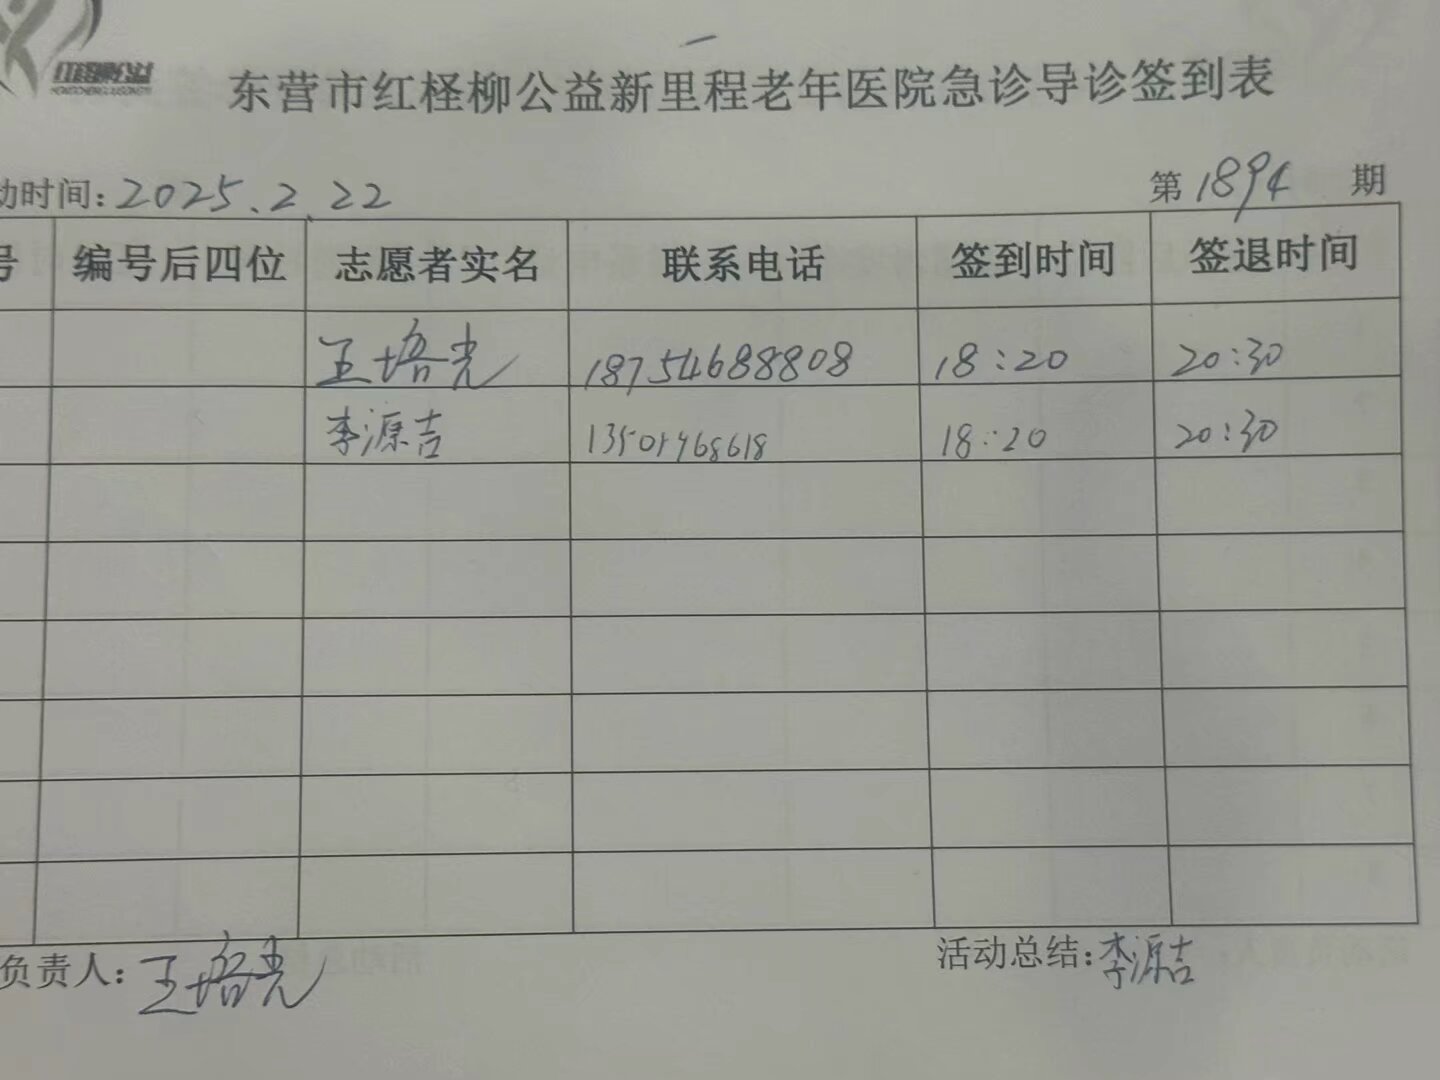 红柽柳公益
东营市红柽柳公益新里程老年医院急诊导诊签到表
动时间:2025.2.22 第1894期
号 编号后四位 志愿者实名 联系电话 签到时间 签退时间
王培光 18754688808 18:20 20:30
李源吉 18:20 20:30
负责人:王培光 活动总结:李源吉